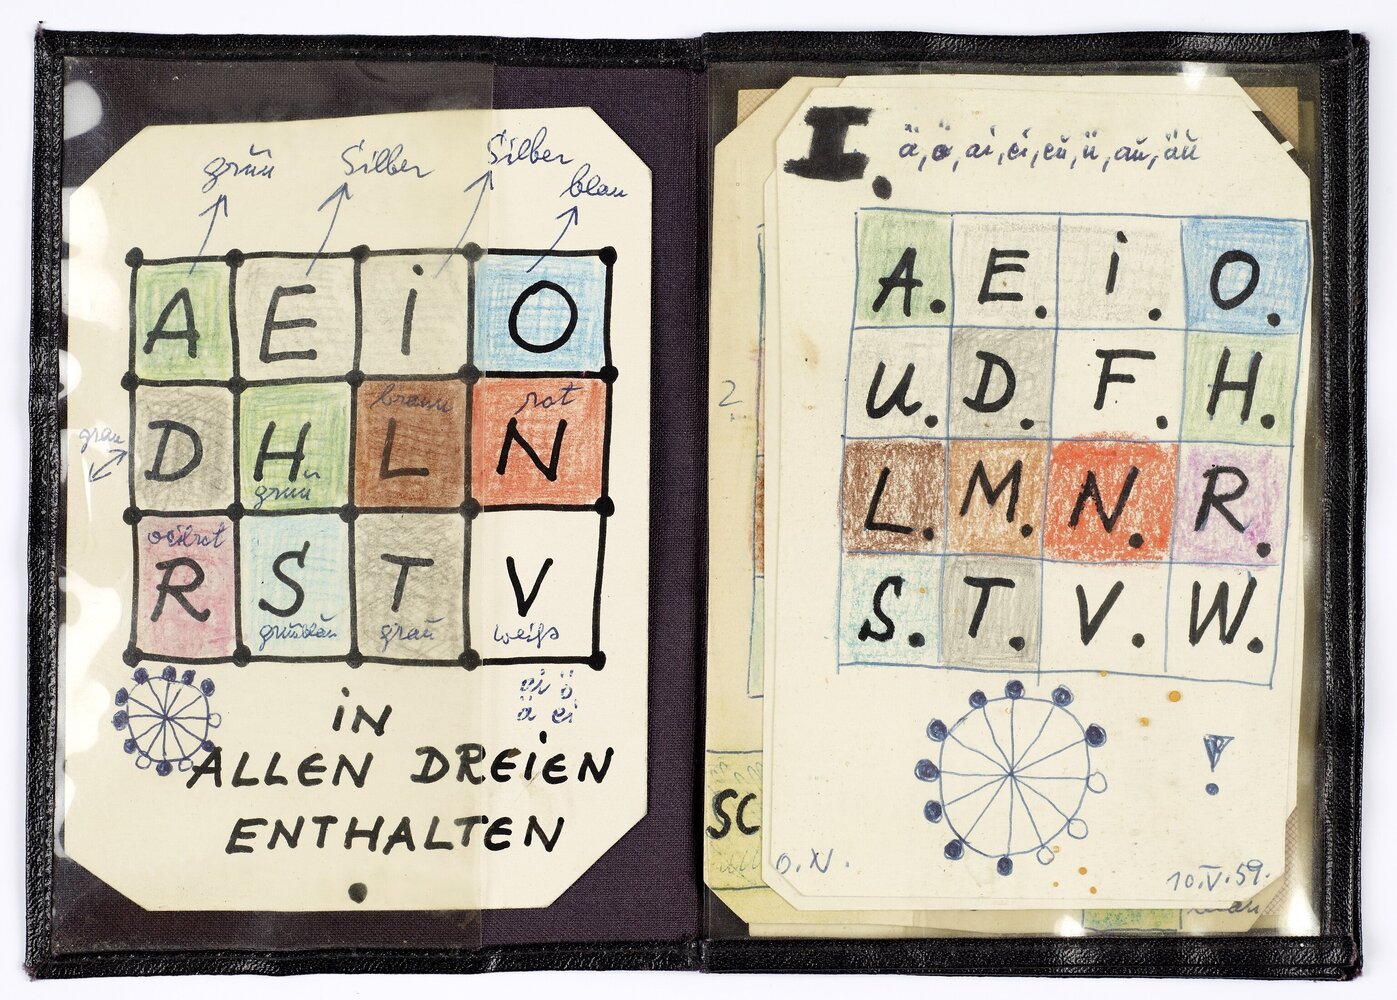 grün Silber Silber blau
A E i O
grau D H grün braun L rot N
R S grünblau T grau V weiß
ai ö
ä ei
iN
ALLEN DREiEN
ENTHALTEN
I. ä, ö, ai, ei, eü, ü, aü, äü
A. E. i. O.
U. D. F. H.
2
L. M. N. R.
S. T. V. W.
!
SC
O.N. 10.V.59.